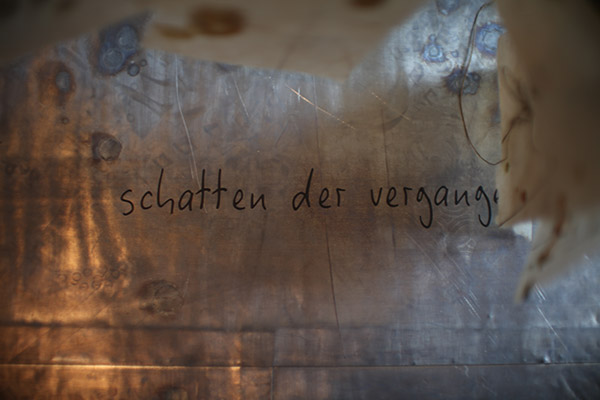 schatten der vergange